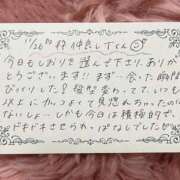 11/20 枠 仲良しTくん
今日もしおりを選んで下さり、ありが
とうございます!! まず一会った瞬間
びっくりした? 髪型変わってて、いつも
以上にかっこよくて見惚れちゃったのかも
ないしょ… しかも今日は積極的で、
ドキドキさせられっぱなしでしたせ